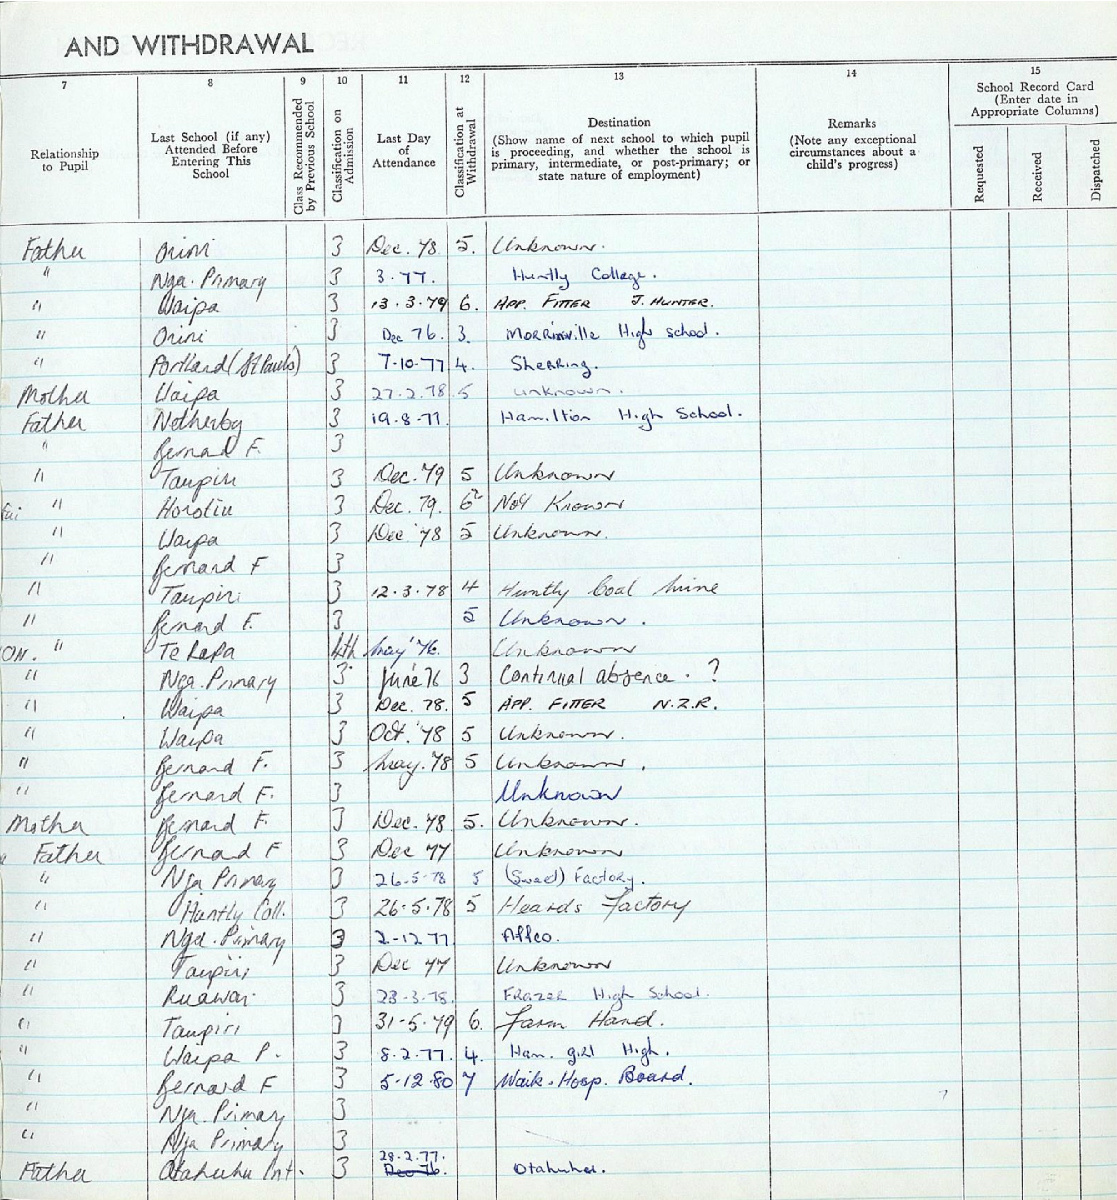 AND WITHDRAWAL
7 8 9 10 11 12 13 14 15
Relationship to Pupil
Last School (if any) Attended Before Entering This School
Class Recommended by Previous School
Classification on Admission
Last Day of Attendance
Classification at Withdrawal
Destination (Show name of next school to which pupil is proceeding, and whether the school is primary, intermediate, or post-primary; or state nature of employment)
Remarks (Note any exceptional circumstances about a child's progress)
School Record Card (Enter date in Appropriate Columns)
Requested Received Dispatched
Father Orini 3 Dec. 78 5. Unknown.
" Nga. Primary 3 3.77. Huntly College.
" Waipa 3 13.3.79 6. APP. FITTER J. HUNTER.
" Orini 3 Dec 76. 3. Morrinsville High school.
" Portland (St Pauls) 3 7-10-77 4. Shearing.
Mother Waipa 3 27.2.78 5 unknown.
Father Netherby 3 19.8.77. Hamilton High School.
" Bernard F. 3
" Taupiri 3 Dec. '79 5 Unknown
" Horotiu 3 Dec. 79. 6 Not Known
" Waipa 3 Dec '78 5 Unknown.
" Bernard F 3
" Taupiri 3 12.3.78 4 Huntly Coal Mine
" Bernard F. 3 5 Unknown.
ON. " Te Rapa 4th May '76. Unknown
" Nga. Primary 3. June 76 3 Continual absence. ?
" Waipa 3 Dec. 78. 5 APP. FITTER N.Z.R.
" Waipa 3 Oct. '78 5 Unknown.
" Bernard F. 3 May. 78 5 Unknown.
" Bernard F. 3 Unknown
Mother Bernard F. 3 Dec. 78 5. Unknown.
Father Bernard F 3 Dec 77 Unknown
" Nga Primary 3 26.5.78 5 Factory.
" Huntly Coll. 3 26.5.78 5 Heards Factory
" Nga. Primary 3 2-12 77 Affco.
" Taupiri 3 Dec 77 Unknown
" Ruawai. 3 23-3-78. Frazer High School.
" Taupiri 3 31-5-79 6. Farm Hand.
" Waipa P. 3 8.2.77. 4. Ham. girl High.
" Bernard F 3 5-12.80 7 Waik. Hosp. Board.
" Nga. Primary 3
" Nga Primary 3
28.2.77.
Father Otahuhu Int. 3 Dec 76. Otahuhu.